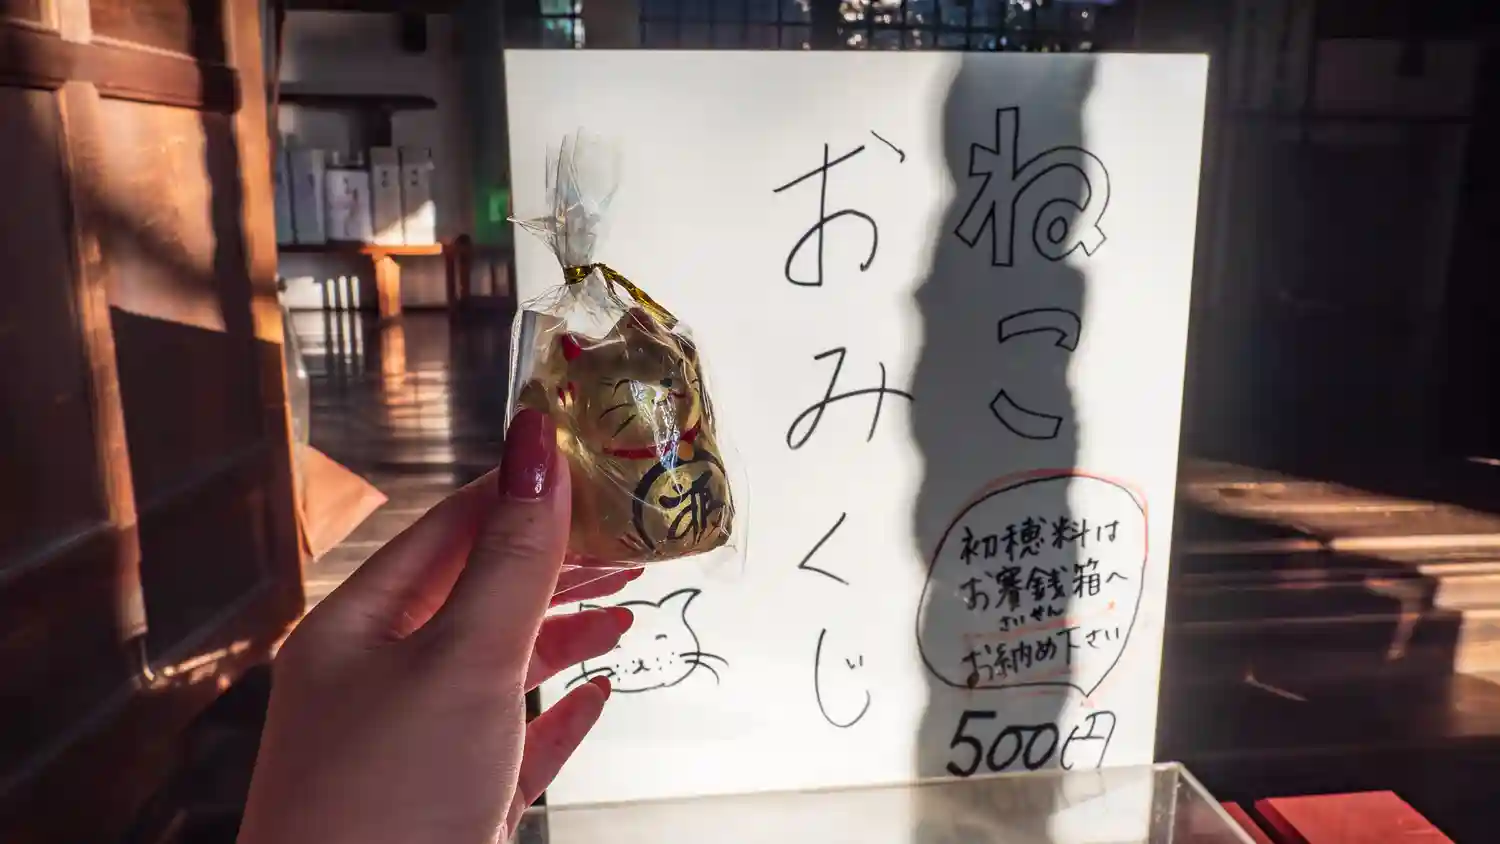 ねこ
おみくじ
初穂料は
お賽銭箱へ
さいせん
お納め下さい
500円